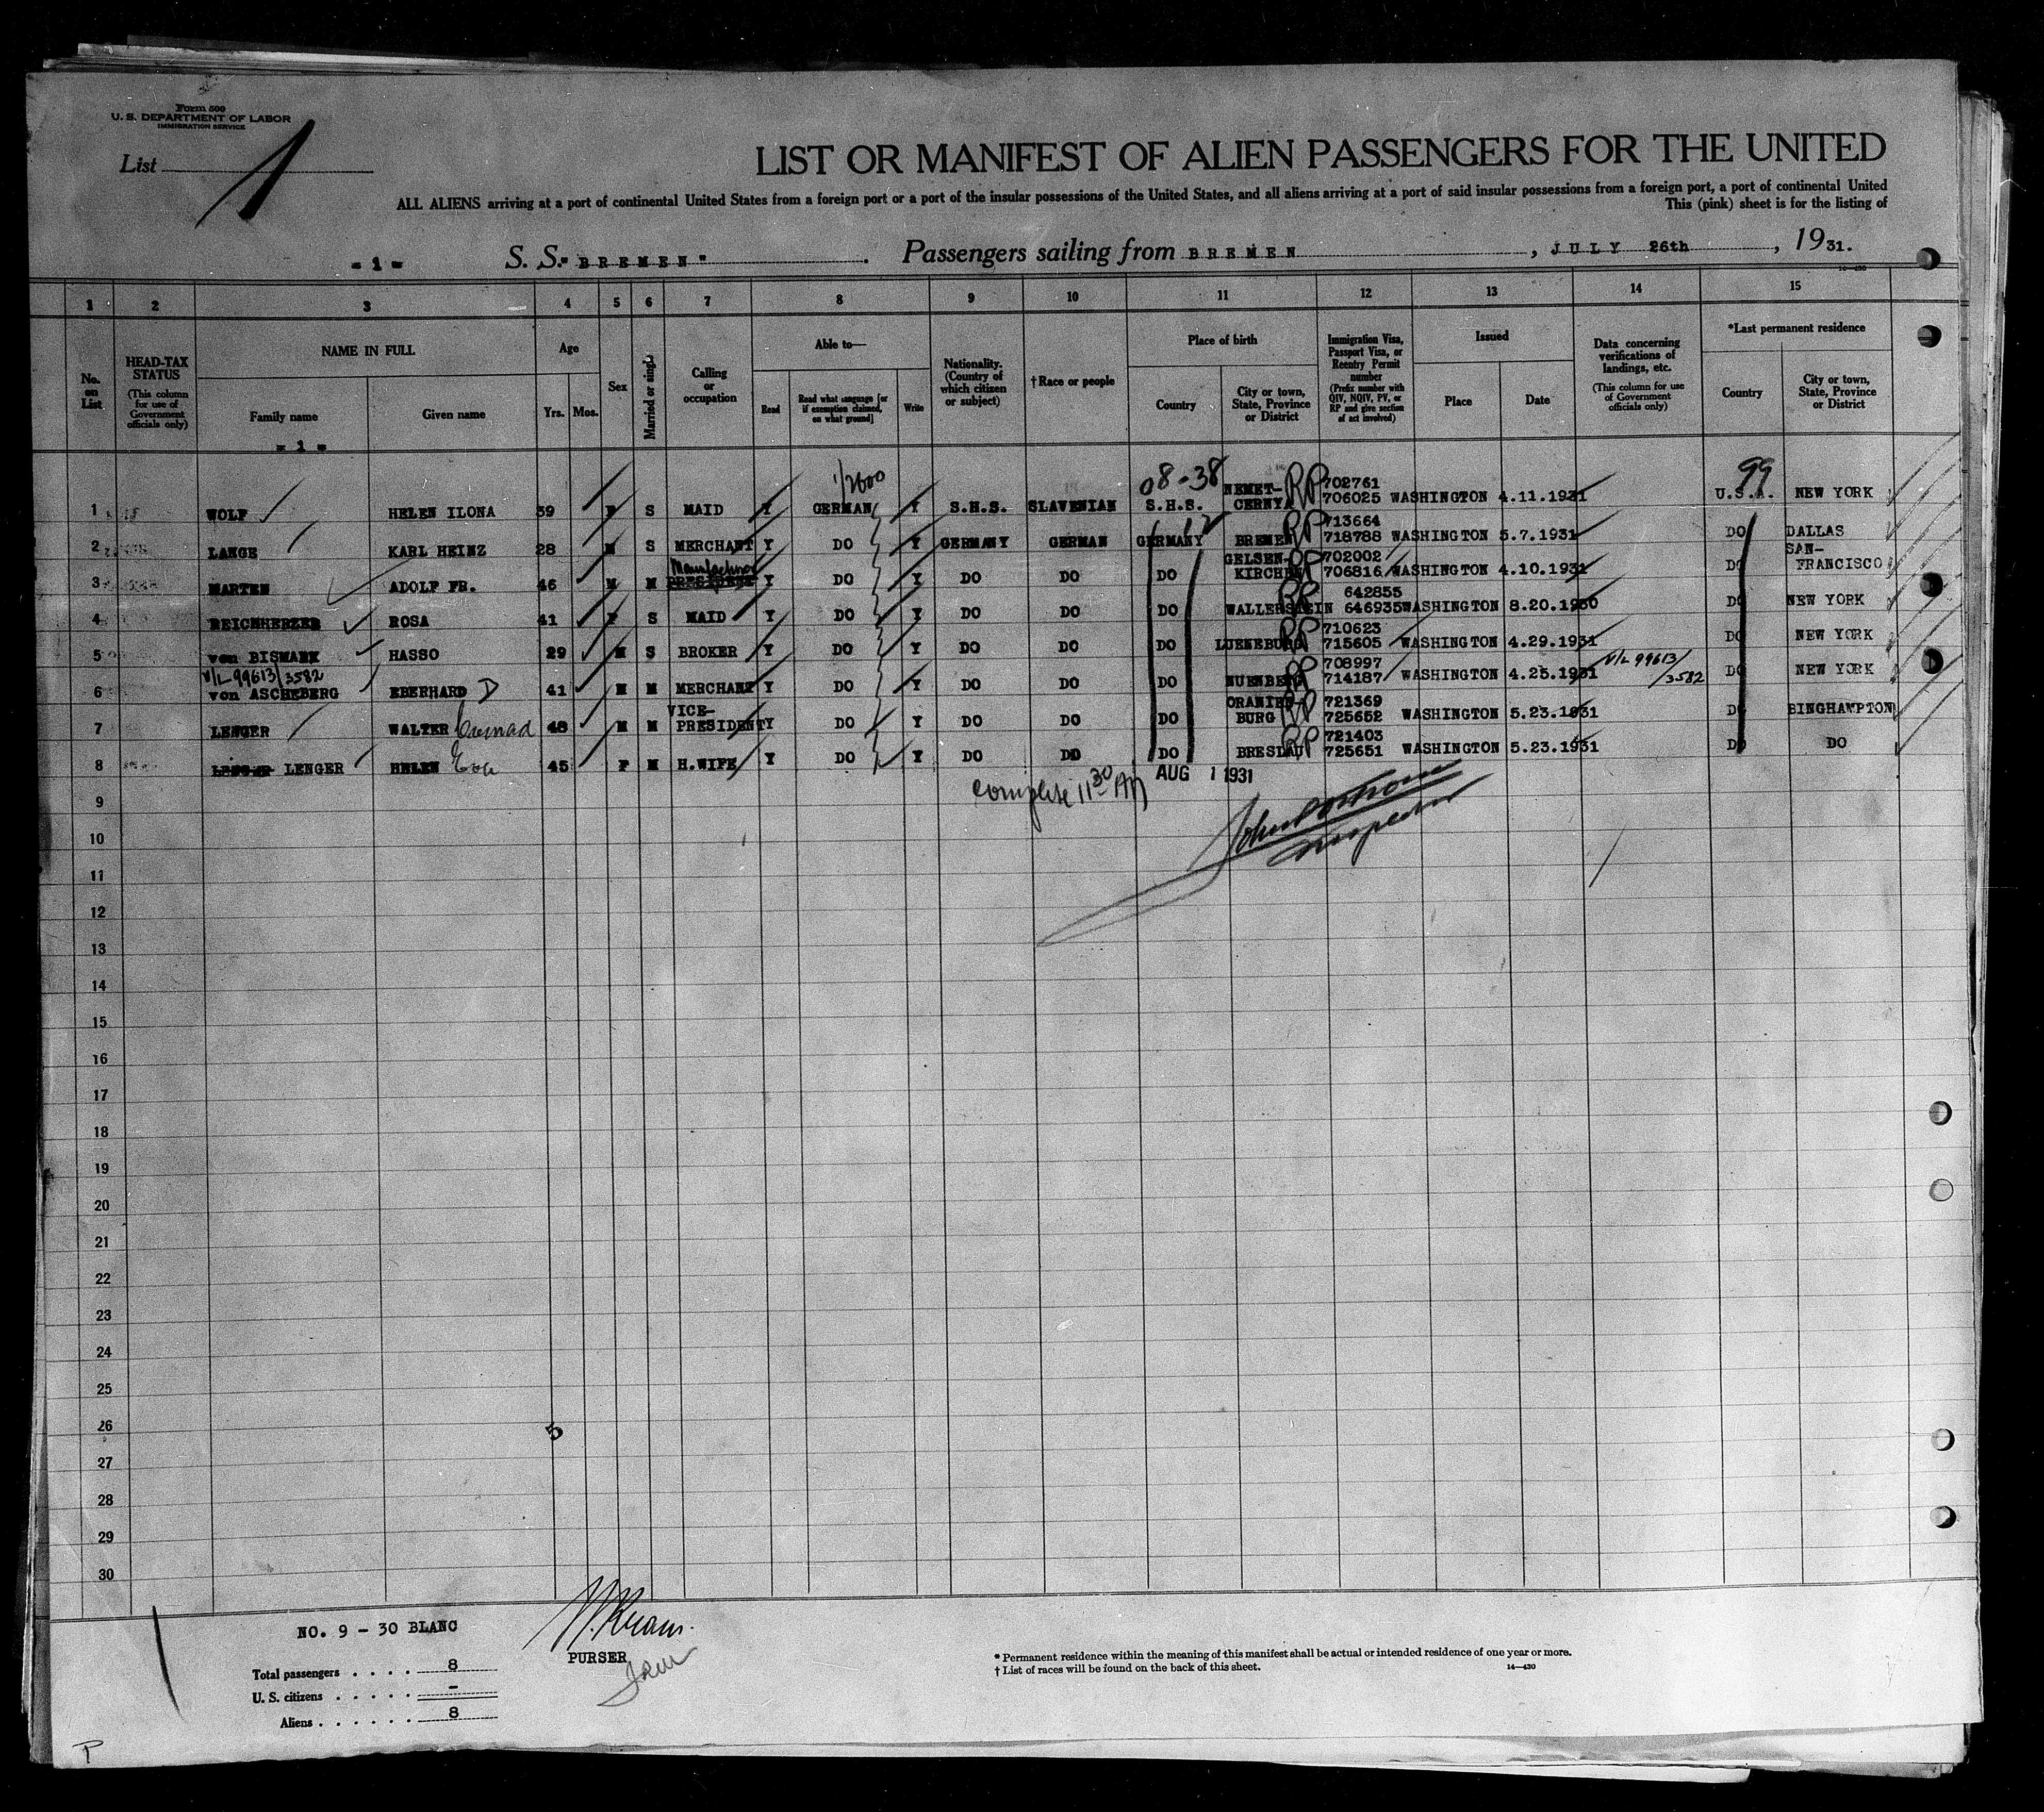 Form 500
U. S. DEPARTMENT OF LABOR
IMMIGRATION SERVICE
List 1
LIST OR MANIFEST OF ALIEN PASSENGERS FOR THE UNITED
ALL ALIENS arriving at a port of continental United States from a foreign port or a port of the insular possessions of the United States, and all aliens arriving at a port of said insular possessions from a foreign port, a port of continental United
This (pink) sheet is for the listing of
- 1 - S. S. "BREMEN" Passengers sailing from BREMEN, JULY 26th, 1931.
14-430
1 2 3 4 5 6 7 8 9 10 11 12 13 14 15
No. on List
HEAD-TAX STATUS
(This column for use of Government officials only)
NAME IN FULL
Family name
Given name
Age
Yrs. Mos.
Sex
Married or single
Calling or occupation
Able to—
Read
Read what language [or if exemption claimed, on what ground]
Write
Nationality. (Country of which citizen or subject)
† Race or people
Place of birth
Country
City or town, State, Province or District
Immigration Visa, Passport Visa, or Reentry Permit number
(Prefix number with QIV, NQIV, PV, or RP and give section of act involved)
Issued
Place
Date
Data concerning verifications of landings, etc.
(This column for use of Government officials only)
*Last permanent residence
Country
City or town, State, Province or District
- 1 -
1/2600
08-38
99
1 WOLF HELEN ILONA 39 F S MAID Y GERMAN Y S.H.S. SLAVENIAN S.H.S. NEMET-CERNYA RP 702761 706025 WASHINGTON 4.11.1931 U.S.A. NEW YORK
2 LANGE KARL HEINZ 28 M S MERCHANT Y DO Y GERMANY GERMAN GERMANY BREMEN RP 713664 718788 WASHINGTON 5.7.1931 DO DALLAS
3 MARTEN ADOLF FR. 46 M M PRESIDENT Manufacturer Y DO Y DO DO DO GELSEN-KIRCHEN RP 702002 706816 WASHINGTON 4.10.1931 DO SAN-FRANCISCO
4 REICHHERZER ROSA 41 F S MAID Y DO Y DO DO DO WALLERSTEIN RP 642855 646935 WASHINGTON 8.20.1930 DO NEW YORK
5 von BISMARK HASSO 29 M S BROKER Y DO Y DO DO DO LUENEBURG RP 710623 715605 WASHINGTON 4.29.1931 DO NEW YORK
V/L 99613/3582
6 von ASCHEBERG EBERHARD D 41 M M MERCHANT Y DO Y DO DO DO NUENBERG RP 708997 714187 WASHINGTON 4.25.1931 V/L 99613/3582 DO NEW YORK
7 LENGER WALTER Conrad 48 M M VICE-PRESIDENT Y DO Y DO DO DO ORANIEN-BURG RP 721369 725652 WASHINGTON 5.23.1931 DO BINGHAMPTON
8 LENGER LENGER HELEN Eva 45 F M H.WIFE Y DO Y DO DO DO BRESLAU RP 721403 725651 WASHINGTON 5.23.1931 DO DO
complete 11 30 AM AUG 1 1931
Inspector
9
10
11
12
13
14
15
16
17
18
19
20
21
22
23
24
25
26
5
27
28
29
30
NO. 9 - 30 BLANC
PURSER
Total passengers . . . . 8
U. S. citizens . . . . . -
Aliens . . . . . . 8
* Permanent residence within the meaning of this manifest shall be actual or intended residence of one year or more.
† List of races will be found on the back of this sheet.
14-430
P